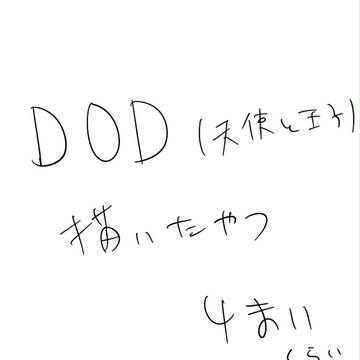 DOD(天使と王子)
描いたやつ
4まい
くらい